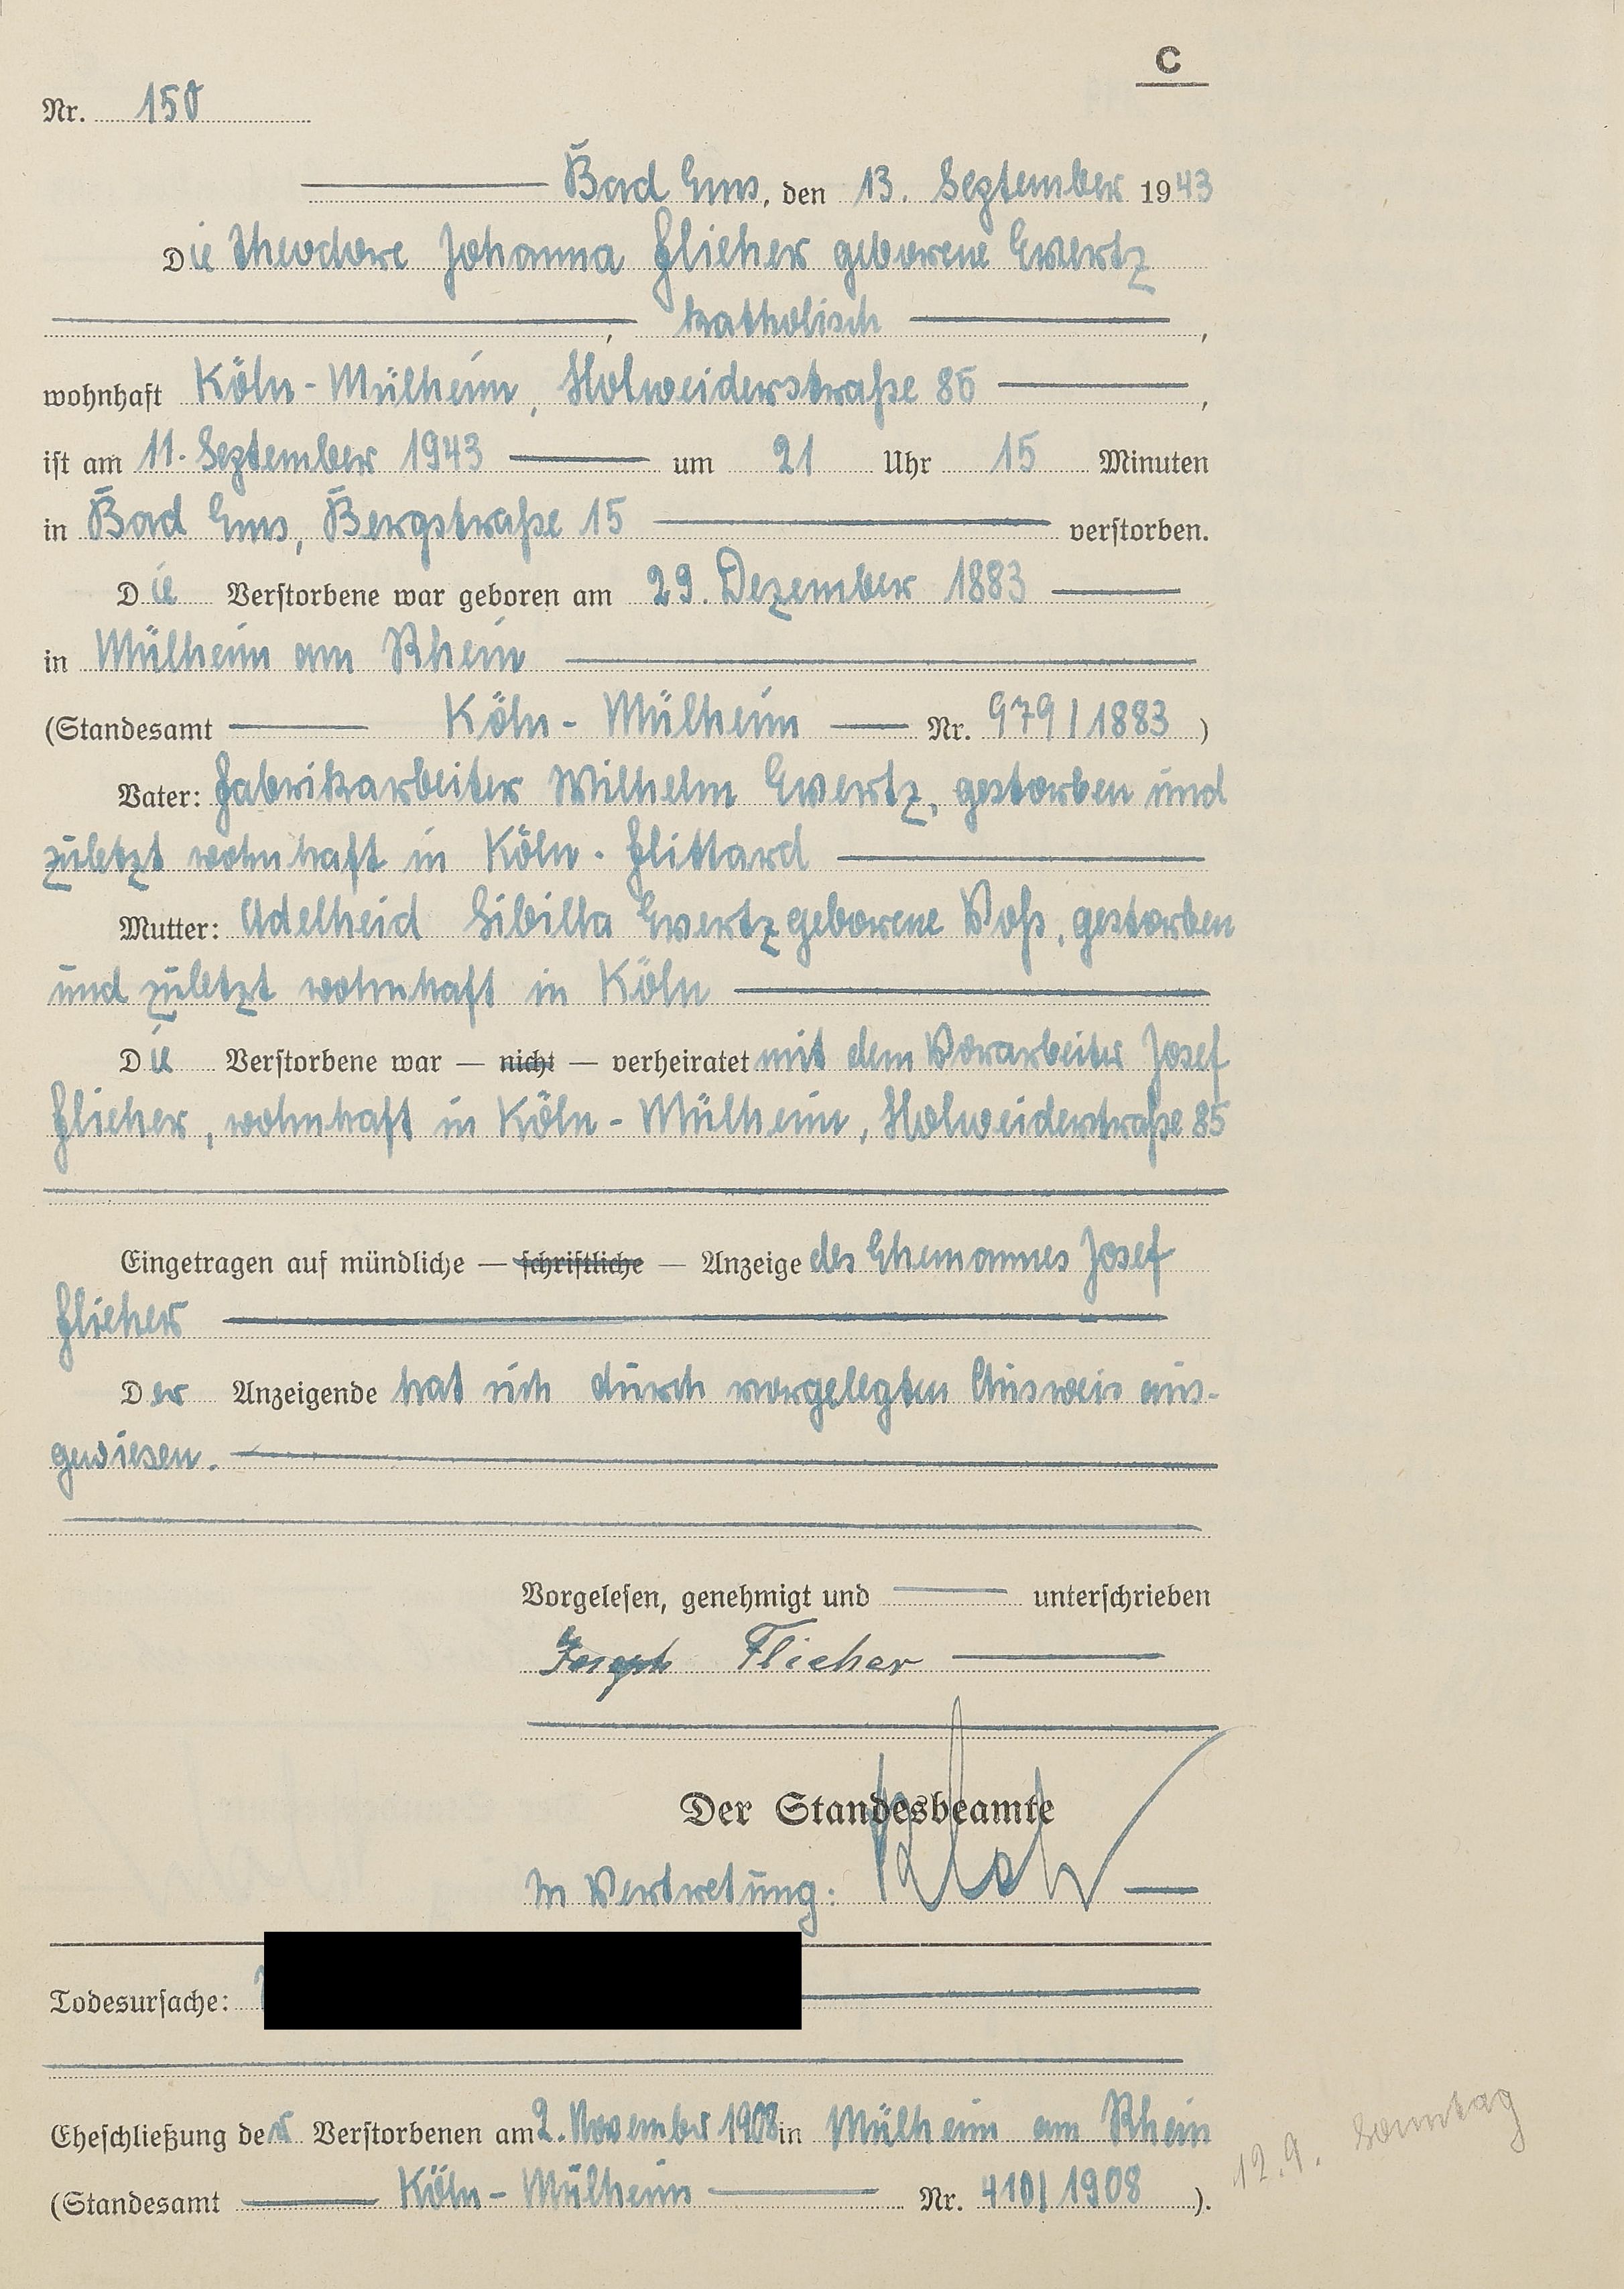 C
Nr. 150
Bad Ems, den 13. September 1943
Die Theodore Johanna Flieher geborene Ewertz
, katholisch ,
wohnhaft Köln-Mülheim, Holweiderstraße 85 ,
ist am 11. September 1943 um 21 Uhr 15 Minuten
in Bad Ems, Bergstraße 15 verstorben.
Die Verstorbene war geboren am 29. Dezember 1883
in Mülheim am Rhein
(Standesamt Köln-Mülheim Nr. 979/1883 )
Vater: Fabrikarbeiter Wilhelm Ewertz, gestorben und
zuletzt wohnhaft in Köln-Flittard
Mutter: Adelheid Sibilla Ewertz geborene Voß, gestorben
und zuletzt wohnhaft in Köln
Die Verstorbene war — nicht — verheiratet mit dem Vorarbeiter Josef
Flieher, wohnhaft in Köln-Mülheim, Holweiderstraße 85
Eingetragen auf mündliche — schriftliche — Anzeige des Ehemannes Josef
Flieher
Der Anzeigende hat sich durch vorgelegten Ausweis aus-
gewiesen.
Vorgelesen, genehmigt und unterschrieben
Joseph Flieher
Der Standesbeamte
In Vertretung:
Todesursache:
Eheschließung der Verstorbenen am 2. November 1908 in Mülheim am Rhein
(Standesamt Köln-Mülheim Nr. 410/1908 ).
12.9. Sonntag